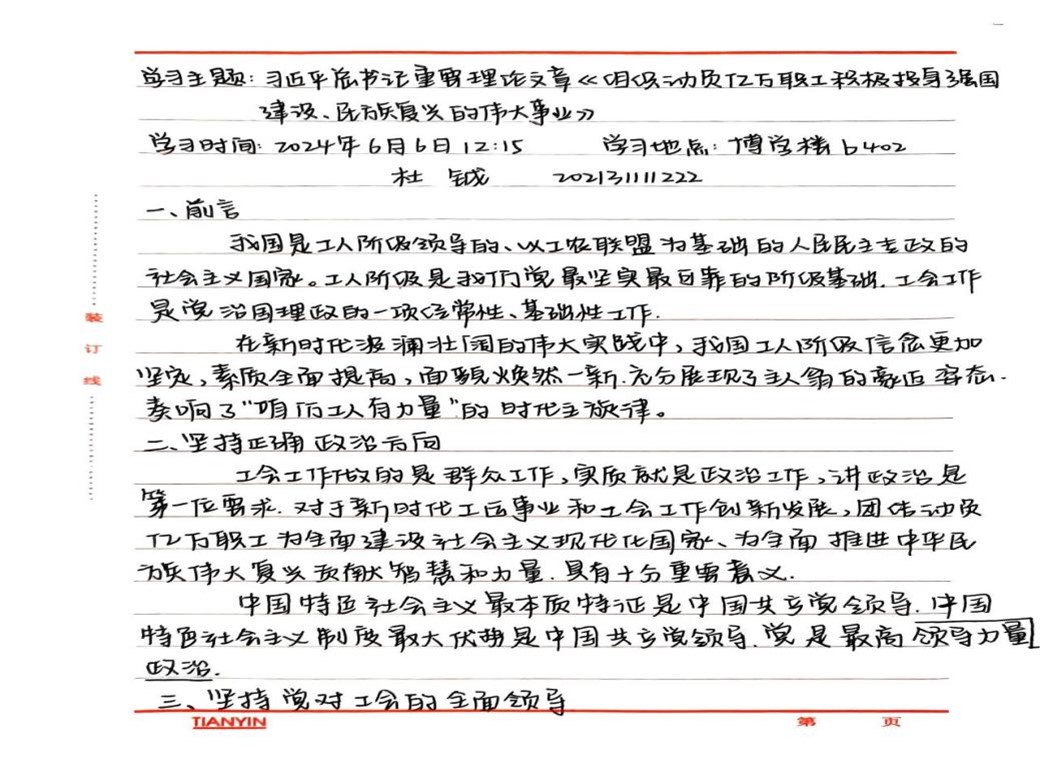 学习主题：习近平总书记重要理论文章《组织动员亿万职工积极投身强国
建设、民族复兴的伟大事业》
学习时间：2024年6月6日12:15 学习地点：博学楼b402
杜 钺 202131111222
一、前言
我国是工人阶级领导的、以工农联盟为基础的人民民主专政的
社会主义国家。工人阶级是我们党最坚实最可靠的阶级基础.工会工作
是党治国理政的一项经常性、基础性工作.
在新时代波澜壮阔的伟大实践中，我国工人阶级信念更加
坚定，素质全面提高，面貌焕然一新.充分展现了主人翁的豪迈姿态.
奏响了“咱们工人有力量”的时代主旋律。
二、坚持正确政治方向
工会工作做的是群众工作，实质就是政治工作，讲政治是
第一位要求.对于新时代工运事业和工会工作创新发展，团结动员
亿万职工为全面建设社会主义现代化国家、为全面推进中华民
族伟大复兴贡献智慧和力量.具有十分重要意义.
中国特色社会主义最本质特征是中国共产党领导.中国
特色社会主义制度最大优势是中国共产党领导.党是最高领导力量
政治.
三、坚持党对工会的全面领导
装
订
线
TIANYIN 第 页